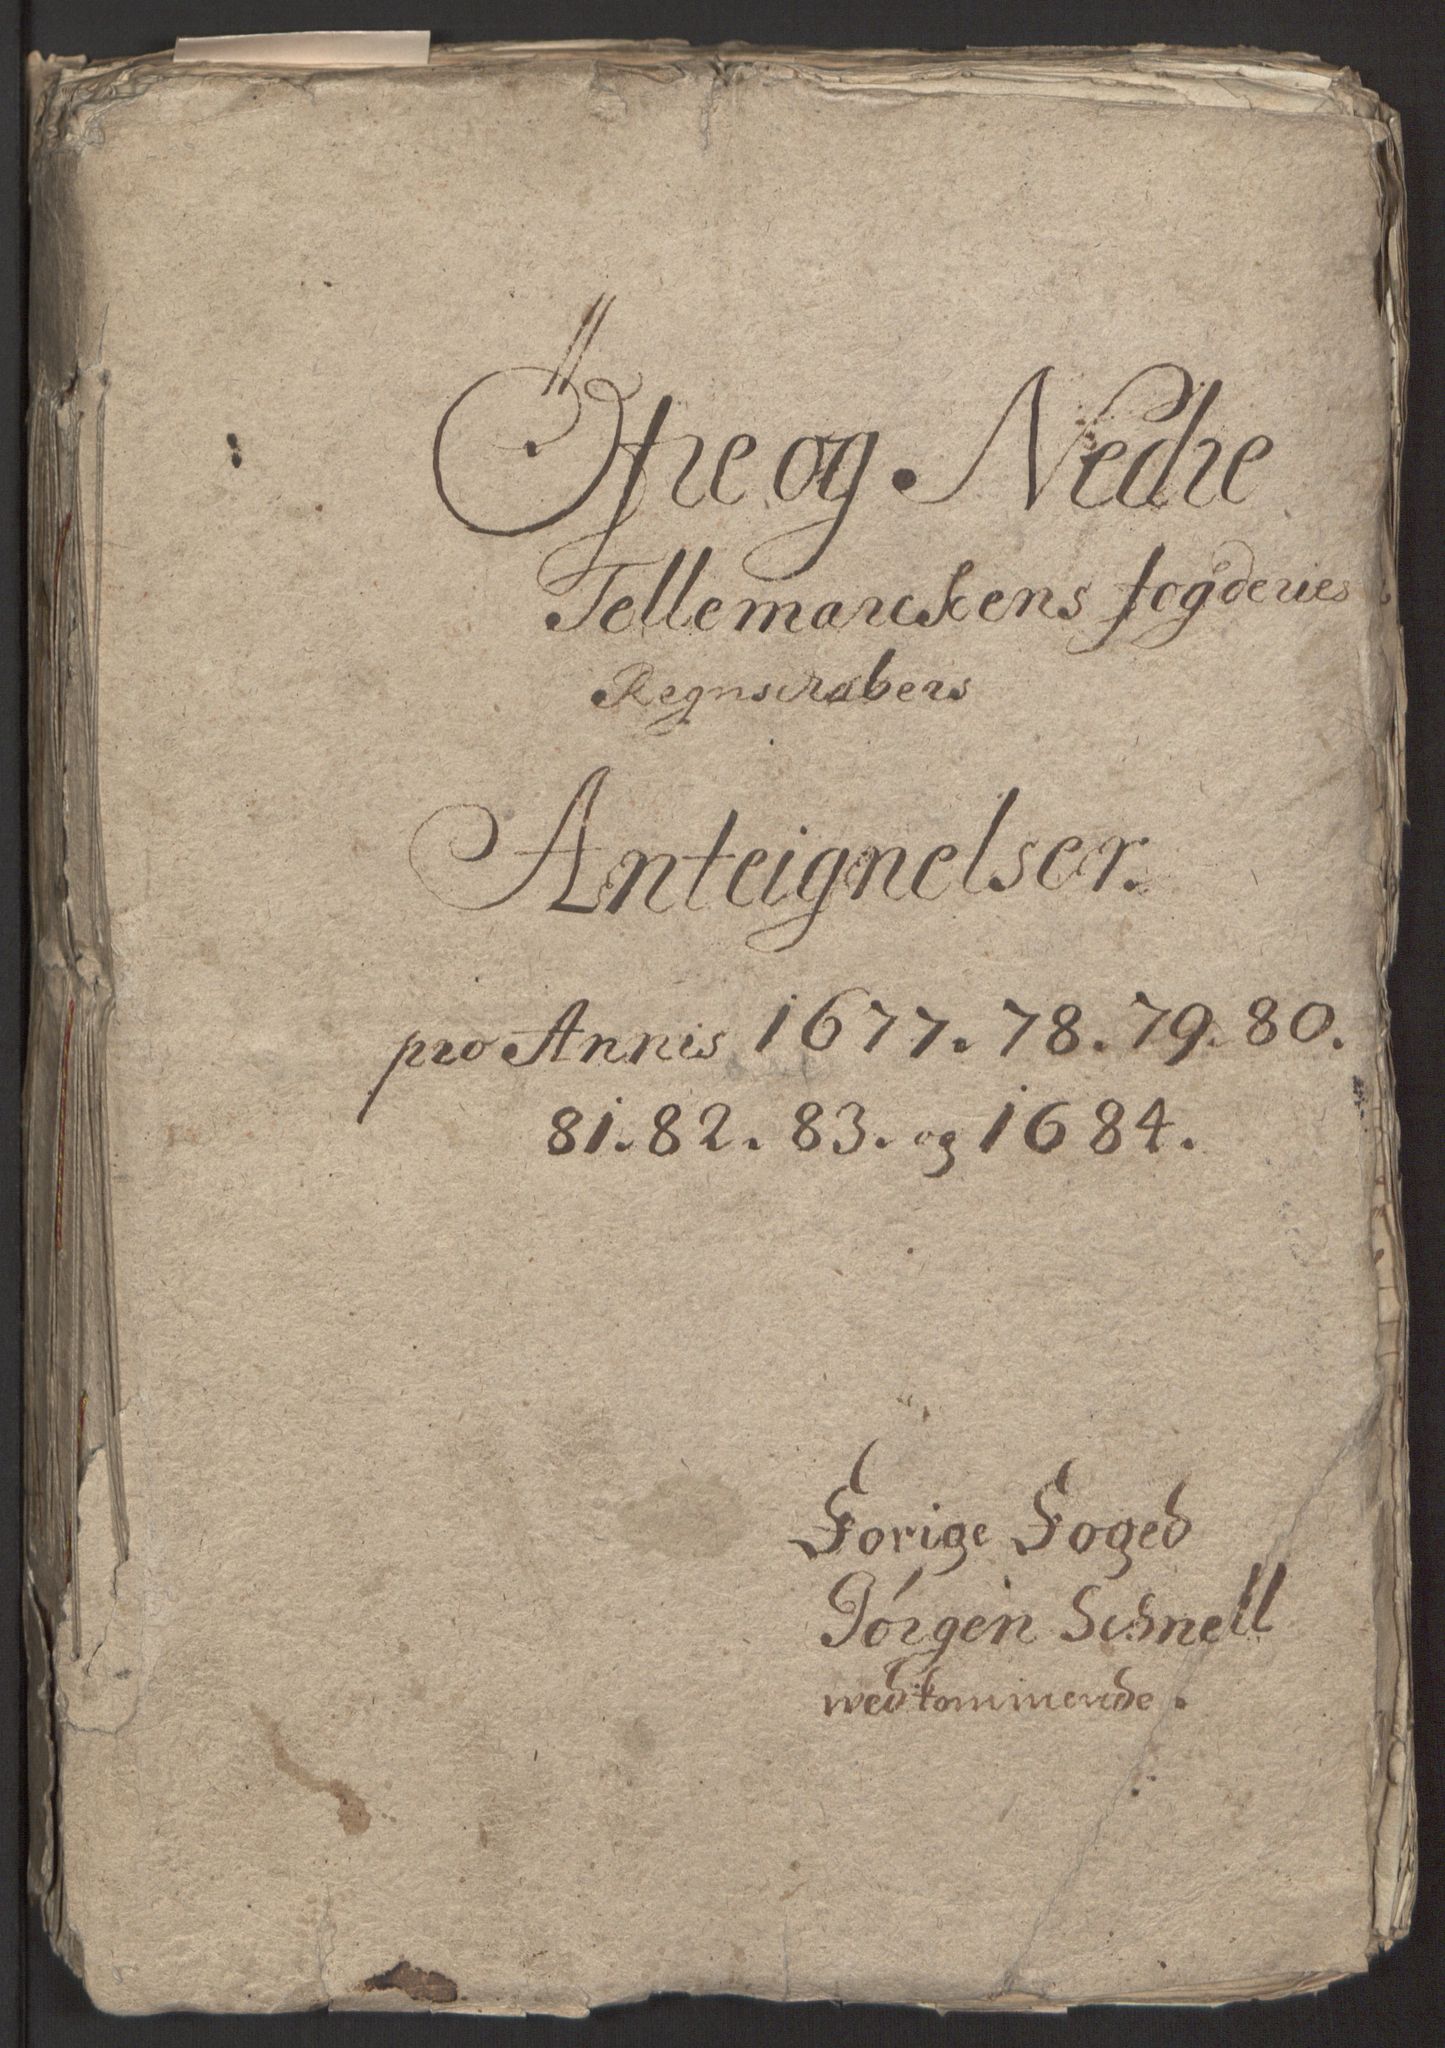 Öfre og Nedre
Tellemarckens fogderies
Regnscrabers
Anteignelser.
pro Annis 1677. 78. 79. 80.
81. 82. 83. og 1684.
Forige Foged
Jörgen Schnell
wedkommende.